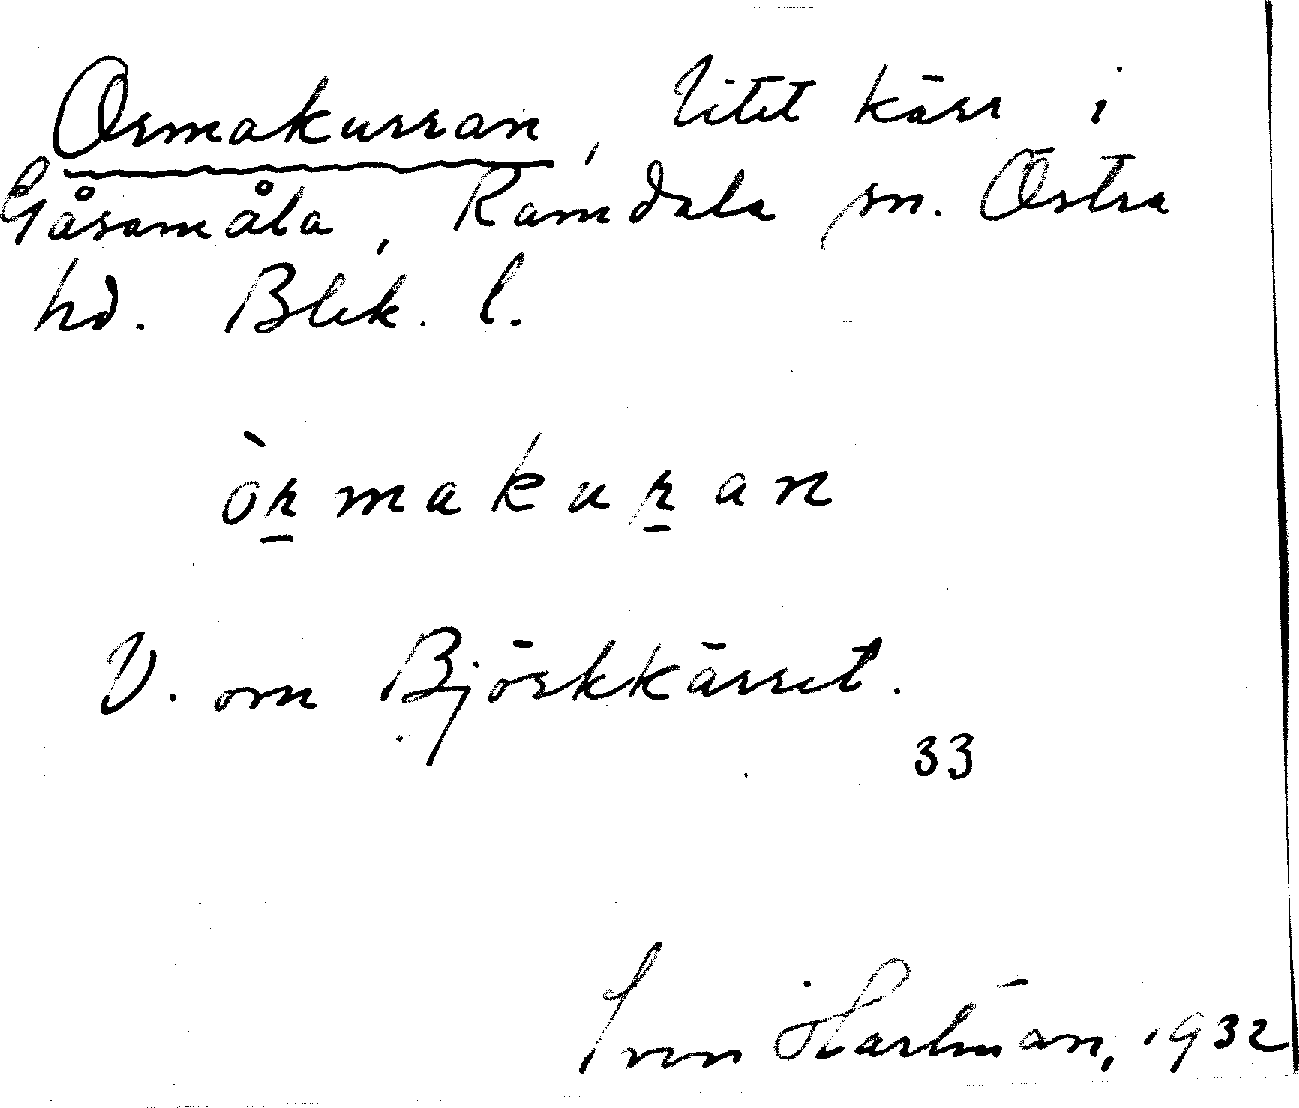 Ormakurran, litet kärr i
Gåsamåla, Ramdala sn. Östra
hd. Blek. l.
òrmakuran
V. om Björkkärret.
33
Sven Hartman, 1932